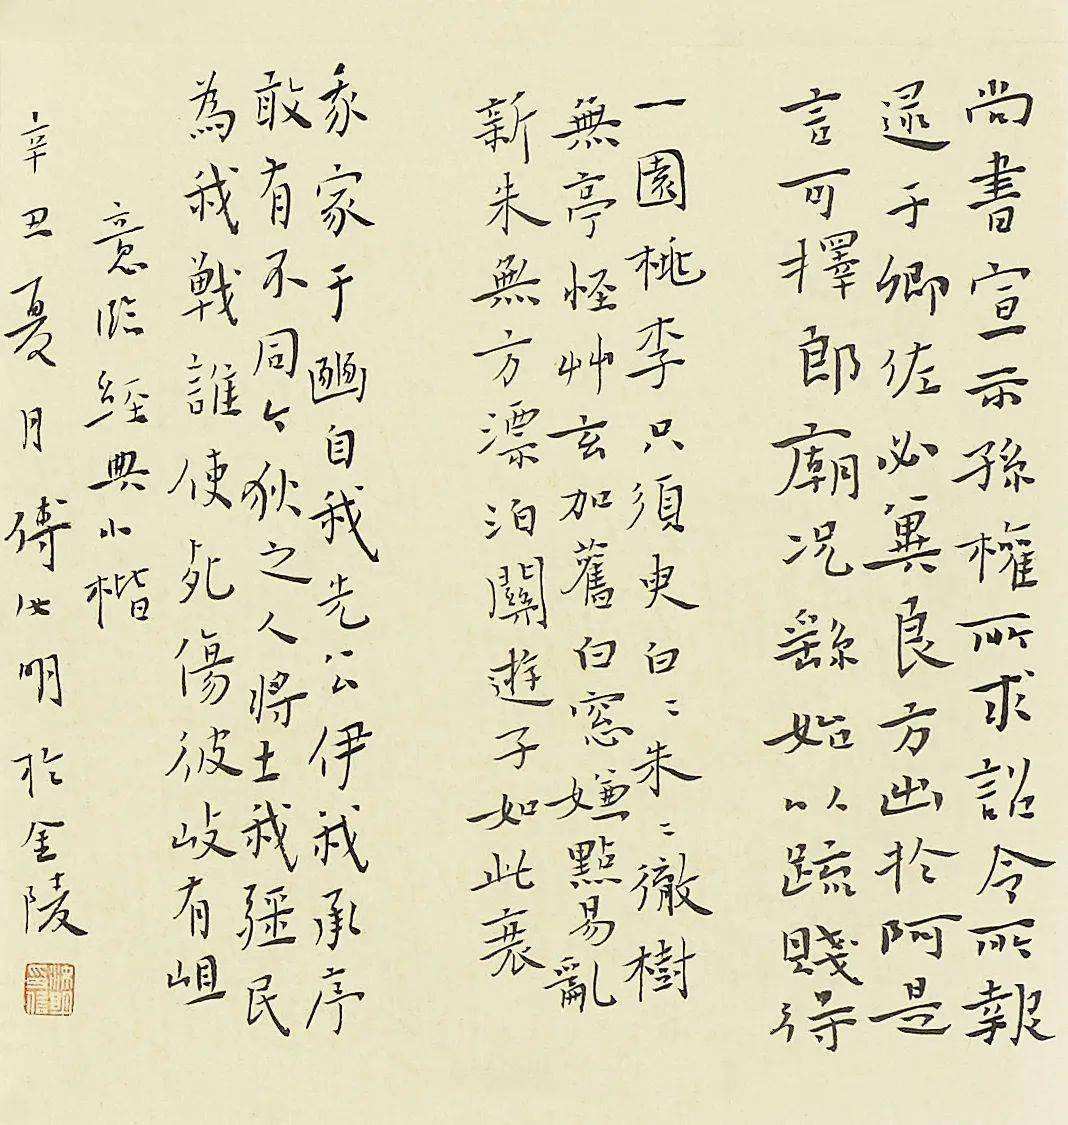 尚書宣示孫權所求詔令所報
逮于卿佐必冀良方出於阿是
言可擇郎廟况繇始以疏賤得
一園桃李只須臾白〻朱〻徹樹
無亭怪艸玄加舊白窓嫌點易亂
新朱無方漂泊關遊子如此衰
豕家于豳自我先公伊我承序
敢有不同今狄之人將土我疆民
為我戰誰使死傷彼岐有岨
意臨經典小楷
辛丑夏月傅明於金陵